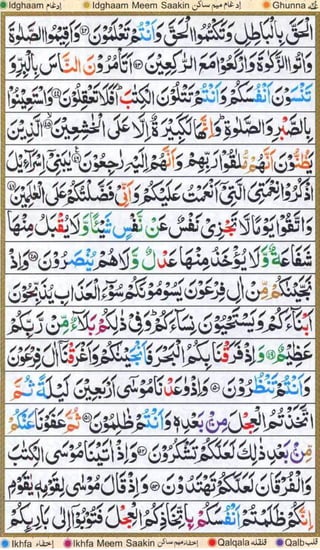 Idghaam ادغام Idghaam Meem Saakin ادغام میم ساکن Ghunna غنہ
الْحَقَّ بِالْبَاطِلِ وَتَكْتُمُوا الْحَقَّ وَاَنْتُمْ تَعْلَمُوْنَ ۝٤٢ وَاَقِيْمُوا الصَّلٰوةَ
وَاٰتُوا الزَّكٰوةَ وَارْكَعُوْا مَعَ الرّٰكِعِيْنَ ۝٤٣ اَتَاْمُرُوْنَ النَّاسَ بِالْبِرِّ وَ
تَنْسَوْنَ اَنْفُسَكُمْ وَاَنْتُمْ تَتْلُوْنَ الْكِتٰبَ ؕ اَفَلَا تَعْقِلُوْنَ ۝٤٤ وَاسْتَعِيْنُوْا
بِالصَّبْرِ وَالصَّلٰوةِ ؕ وَاِنَّهَا لَكَبِيْرَةٌ اِلَّا عَلَى الْخٰشِعِيْنَ ۝٤٥ الَّذِيْنَ
يَظُنُّوْنَ اَنَّهُمْ مُّلٰقُوْا رَبِّهِمْ وَاَنَّهُمْ اِلَيْهِ رٰجِعُوْنَ ۝٤٦ يٰبَنِيْٓ اِسْرَآءِيْلَ
اذْكُرُوْا نِعْمَتِيَ الَّتِيْٓ اَنْعَمْتُ عَلَيْكُمْ وَاَنِّيْ فَضَّلْتُكُمْ عَلَى الْعٰلَمِيْنَ ۝٤٧
وَاتَّقُوْا يَوْمًا لَّا تَجْزِيْ نَفْسٌ عَنْ نَّفْسٍ شَيْـًٔا وَّلَا يُقْبَلُ مِنْهَا
شَفَاعَةٌ وَّلَا يُؤْخَذُ مِنْهَا عَدْلٌ وَّلَا هُمْ يُنْصَرُوْنَ ۝٤٨ وَاِذْ
نَجَّيْنٰكُمْ مِّنْ اٰلِ فِرْعَوْنَ يَسُوْمُوْنَكُمْ سُوْٓءَ الْعَذَابِ يُذَبِّحُوْنَ
اَبْنَآءَكُمْ وَيَسْتَحْيُوْنَ نِسَآءَكُمْ ؕ وَفِيْ ذٰلِكُمْ بَلَآءٌ مِّنْ رَّبِّكُمْ
عَظِيْمٌ ۝٤٩ وَاِذْ فَرَقْنَا بِكُمُ الْبَحْرَ فَاَنْجَيْنٰكُمْ وَاَغْرَقْنَآ اٰلَ فِرْعَوْنَ
وَاَنْتُمْ تَنْظُرُوْنَ ۝٥٠ وَاِذْ وٰعَدْنَا مُوْسٰٓى اَرْبَعِيْنَ لَيْلَةً ثُمَّ
اتَّخَذْتُمُ الْعِجْلَ مِنْۢ بَعْدِهٖ وَاَنْتُمْ ظٰلِمُوْنَ ۝٥١ ثُمَّ عَفَوْنَا عَنْكُمْ
مِّنْۢ بَعْدِ ذٰلِكَ لَعَلَّكُمْ تَشْكُرُوْنَ ۝٥٢ وَاِذْ اٰتَيْنَا مُوْسَى الْكِتٰبَ
وَالْفُرْقَانَ لَعَلَّكُمْ تَهْتَدُوْنَ ۝٥٣ وَاِذْ قَالَ مُوْسٰى لِقَوْمِهٖ يٰقَوْمِ
اِنَّكُمْ ظَلَمْتُمْ اَنْفُسَكُمْ بِاتِّخَاذِكُمُ الْعِجْلَ فَتُوْبُوْٓا اِلٰى بَارِئِكُمْ
Ikhfa اخفاء Ikhfa Meem Saakin اخفاء میم ساکن Qalqala قلقلہ Qalb قلب